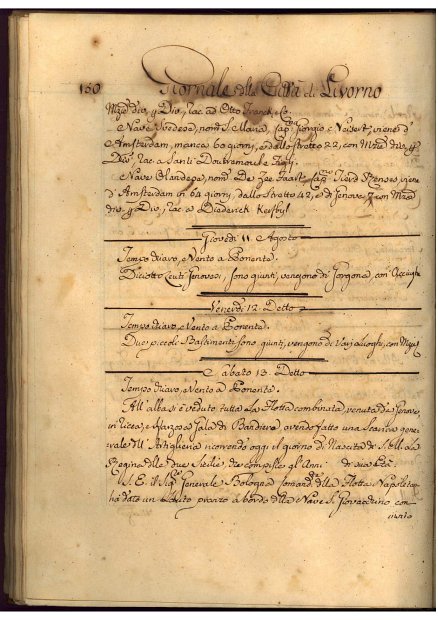 150 Giornale della Città di Livorno
div. p Div., rac. ad Otto Franck, e Co.
Nave Svedese, nom. S. Maria, Cap. Giorgio viene d'
Amsterdam, manca 60 giorni, e dallo stretto 22, con div. p
Div. rac. a Santi e Figlj.
Nave Olandese, nom. De Zee Cap. viene
d'Amsterdam in 64 giorni, dallo Stretto 42, e di Genova 7, con
div. p Div., rac. a Diederick
Giovedì 11. Agosto
Tempo chiaro, e Vento a Ponente.
Diciotto Leuti Genovesi, sono giunti, vengono di Gorgona, con Acciughe
Venerdì 12. Detto
Tempo chiaro, e Vento a Ponente.
Due piccoli Bastimenti sono giunti, vengono di Varj Luoghi, con
Sabato 13. Detto
Tempo chiaro, e Vento a Ponente.
All'alba si è veduto tutta la Flotta combinata, venuta da Genova,
in Liceza, e Marzocco Gala di Bandiere, avendo fatto una Scarica gene
rale dell'Artiglieria ricorrendo oggi il giorno di Nascita di S. M. La
Regina delle due Sicilie, che compisce gl'Anni di sua età.
S. E. il Sig. Generale Bologna Comand. della Flotta Napoletana
ha dato un pranzo a bordo della Nave S. Giovacchino con